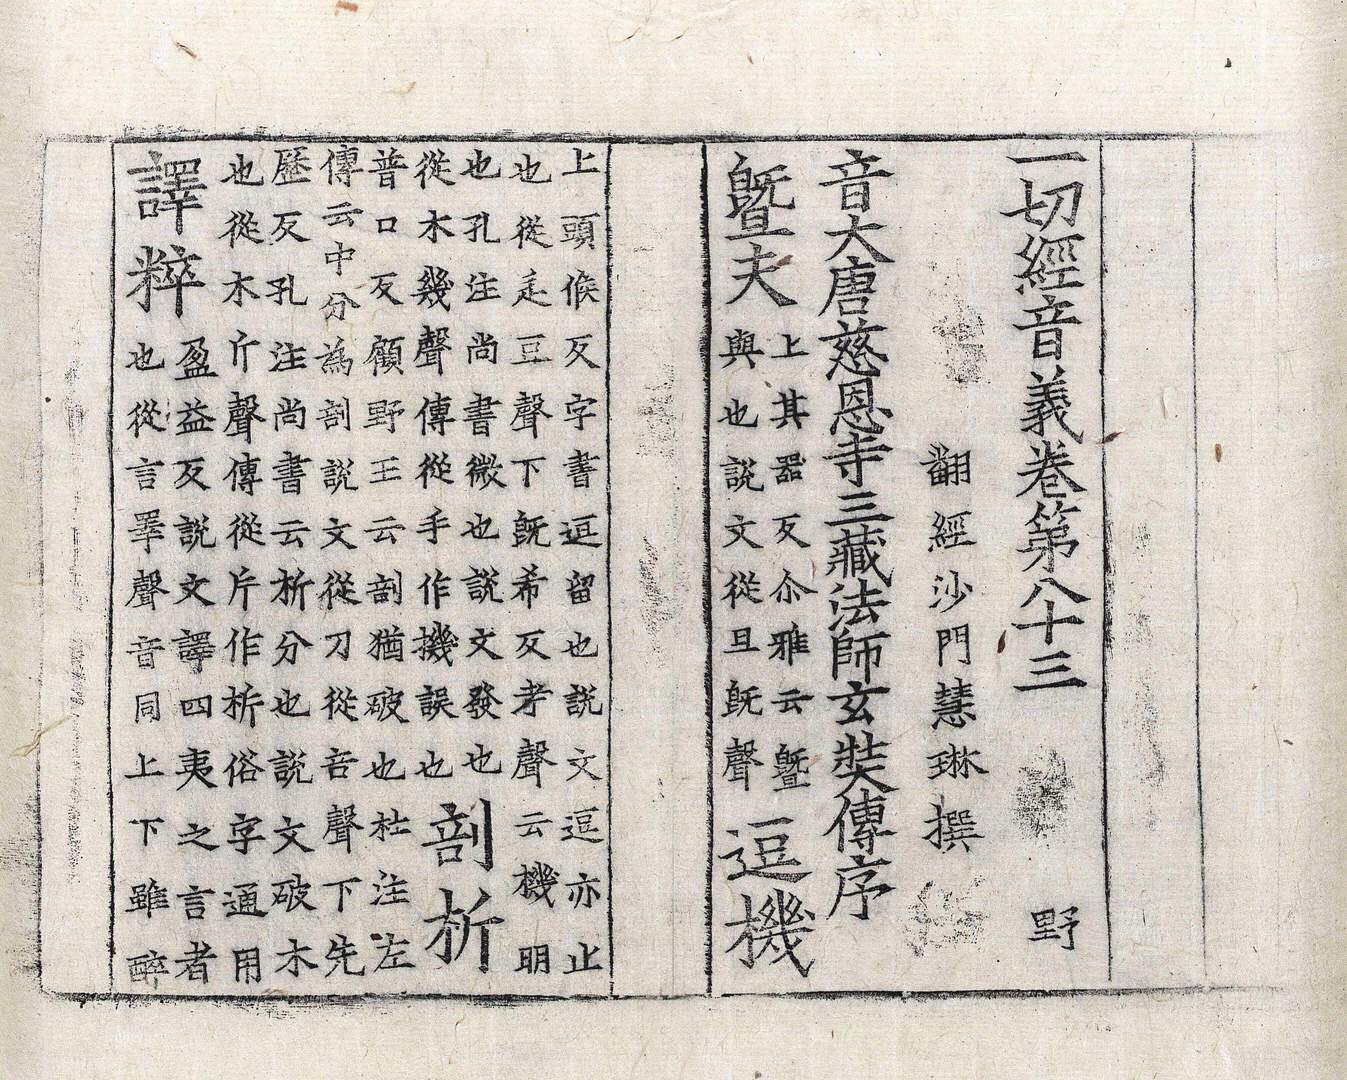 一切經音義卷第八十三 野
翻經沙門慧琳撰
音大唐慈恩寺三藏法師玄奘傳序
曁夫
上其器反尒雅云曁
與也說文從旦旣聲
逗機
上頭候反字書逗留也說文逗亦止
也從辵豆聲下旣希反孝聲云機明
也孔注尚書微也說文發也
從木幾聲傳從手作機誤也
剖析
普口反顧野王云剖猶破也杜注左
傳云中分為剖說文從刀從咅聲下先
歷反孔注尚書云析分也說文破木
也從木斤聲傳從斤作析俗字通用
譯粹
盈益反說文譯四夷之言者
也從言睪聲音同上下雖醉